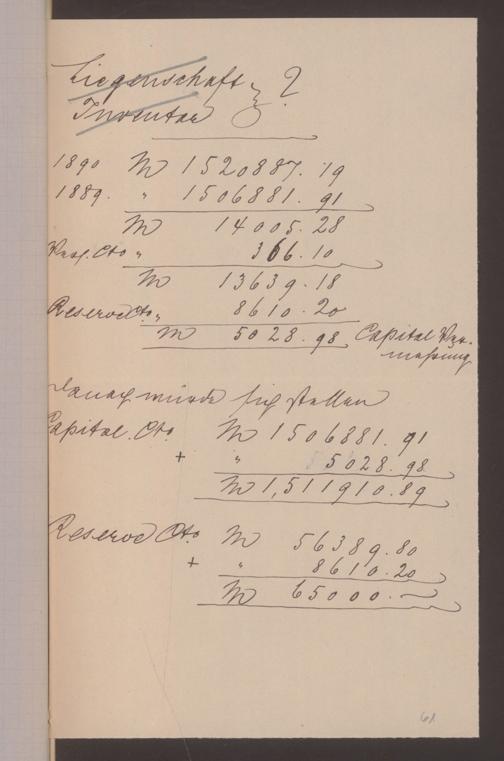 Liegenschaft } ?
Inventar
1890 M 1520887.19
1889. " 1506881.91
M 14005.28
Cto " 366.10
M 13639.18
Reserve Cto " 8610.20
M 5028.98 Capital Ver-
mehrung
Danach würde sich stellen
Capital. Cto. M 1506881.91
+ " 5028.98
M 1,511910.89
Reserve Cto. M 56389.80
+ " 8610.20
M 65000.—
61